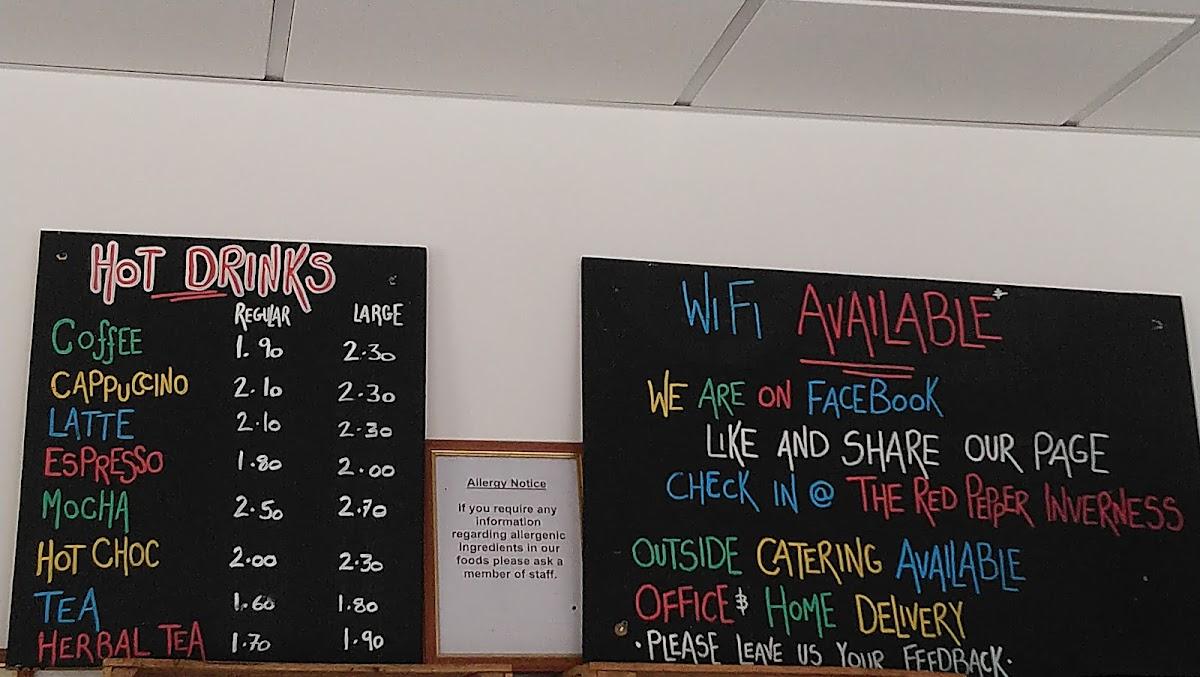 HOT DRINKS
REGULAR LARGE
COFFEE 1.90 2.30
CAPPUCCINO 2.10 2.30
LATTE 2.10 2.30
ESPRESSO 1.80 2.00
MOCHA 2.50 2.70
HOT CHOC 2.00 2.30
TEA 1.60 1.80
HERBAL TEA 1.70 1.90
Allergy Notice
If you require any
information
regarding allergenic
ingredients in our
foods please ask a
member of staff.
WIFI AVAILABLE*
WE ARE ON FACEBOOK
LIKE AND SHARE OUR PAGE
CHECK IN @ THE RED PEPPER INVERNESS
OUTSIDE CATERING AVAILABLE
OFFICE & HOME DELIVERY
·PLEASE LEAVE US YOUR FEEDBACK·